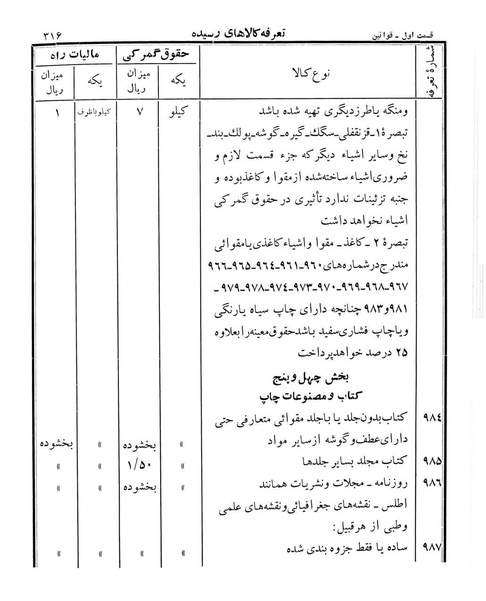 قسمت اول ـ قوانین
تعرفه کالاهای رسیده
۳۱۶
شمارهٔ تعرفه
نوع کالا
حقوق گمرکی
مالیات راه
یکه
میزان ریال
یکه
میزان ریال
ومنگه یاطرزدیگری تهیه شده باشد
کیلو
۷
کیلو باظرف
۱
تبصرهٔ ۱ـ قزنقفلی ـ سگک ـ گیره ـ گوشه ـ پولک ـ بند ـ
نخ وسایر اشیاء دیگر که جزء قسمت لازم و
ضروری اشیاء ساخته‌شده ازمقوا و کاغذبوده و
جنبه تزئینات ندارد تأثیری در حقوق گمرکی
اشیاء نخواهد داشت
تبصرهٔ ۲ ـ کاغذ ـ مقوا و اشیاء کاغذی یامقوائی
مندرج درشماره‌های ۹۶۰ـ۹۶۱ـ۹۶۴ـ۹۶۵ـ۹۶۶
۹۶۷ـ۹۶۸ـ۹۶۹ـ۹۷۰ـ۹۷۳ـ۹۷۴ـ۹۷۸ـ۹۷۹ ـ
۹۸۱و۹۸۳ چنانچه دارای چاپ سیاه یارنگی
ویاچاپ فشاری سفید باشد حقوق معینه را بعلاوه
۲۵ درصد خواهد پرداخت
بخش چهل و پنج
کتاب و مصنوعات چاپ
۹۸۴
کتاب بدون جلد یا باجلد مقوائی متعارفی حتی
دارای عطف و گوشه ازسایر مواد
»
بخشوده
»
بخشوده
۹۸۵
کتاب مجلد بسایر جلدها
»
۱/۵۰
»
»
۹۸۶
روزنامه ـ مجلات ونشریات همانند
»
بخشوده
»
»
اطلس ـ نقشه‌های جغرافیائی ونقشه‌های علمی
وطبی از هرقبیل:
۹۸۷
ساده یا فقط جزوه بندی شده
»
»
»
»